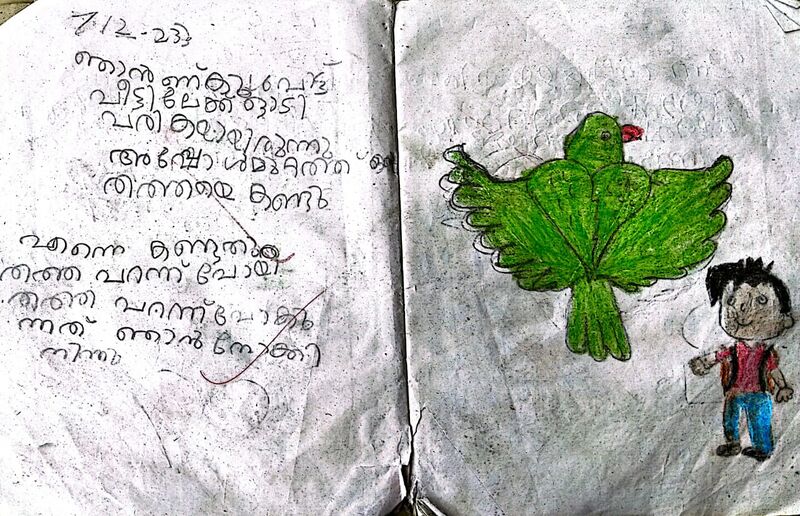 7/2-23
ഞാൻ
വീട്ടിലേക്ക് ഓടി
വരി കയായിരുന്നു
അപ്പോൾ മുറ്റത്ത് ഒരു
തത്തയെ കണ്ടു
എന്നെ കണ്ടതും
തത്ത പറന്ന് പോയി
തത്ത പറന്ന് പോകു
ന്നത് ഞാൻ നോക്കി
നിന്നു